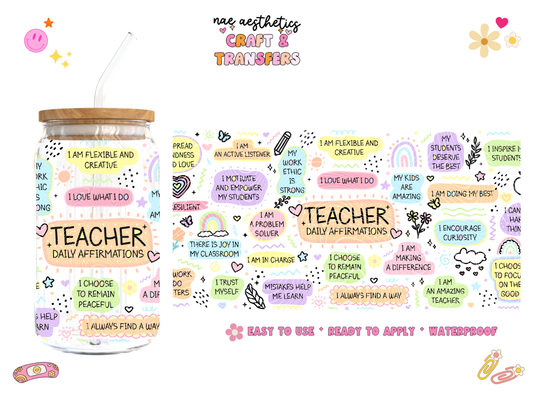 nae aesthetics
CRAFT &
TRANSFERS
I AM FLEXIBLE AND
CREATIVE
I LOVE WHAT I DO
TEACHER
DAILY AFFIRMATIONS
I CHOOSE
TO REMAIN
PEACEFUL
I ALWAYS FIND A WAY
I AM
AN ACTIVE LISTENER
MY
WORK
ETHIC
IS
STRONG
I AM FLEXIBLE AND
CREATIVE
MY
STUDENTS
DESERVE
THE BEST
I INSPIRE
STUDENTS
I MOTIVATE
AND EMPOWER
MY STUDENTS
I LOVE WHAT I DO
MY KIDS
ARE
AMAZING
I AM DOING MY BEST
I AM
A PROBLEM
SOLVER
TEACHER
DAILY AFFIRMATIONS
THERE IS JOY IN
MY CLASSROOM
I ENCOURAGE
CURIOSITY
I AM IN CHARGE
I CHOOSE
TO REMAIN
PEACEFUL
I AM
MAKING
A DIFFERENCE
I TRUST
MYSELF
MISTAKES HELP
ME LEARN
I ALWAYS FIND A WAY
I AM
AN AMAZING
TEACHER
I CHOOSE
TO FOCUS
ON THE
GOOD
EASY TO USE * READY TO APPLY * WATERPROOF